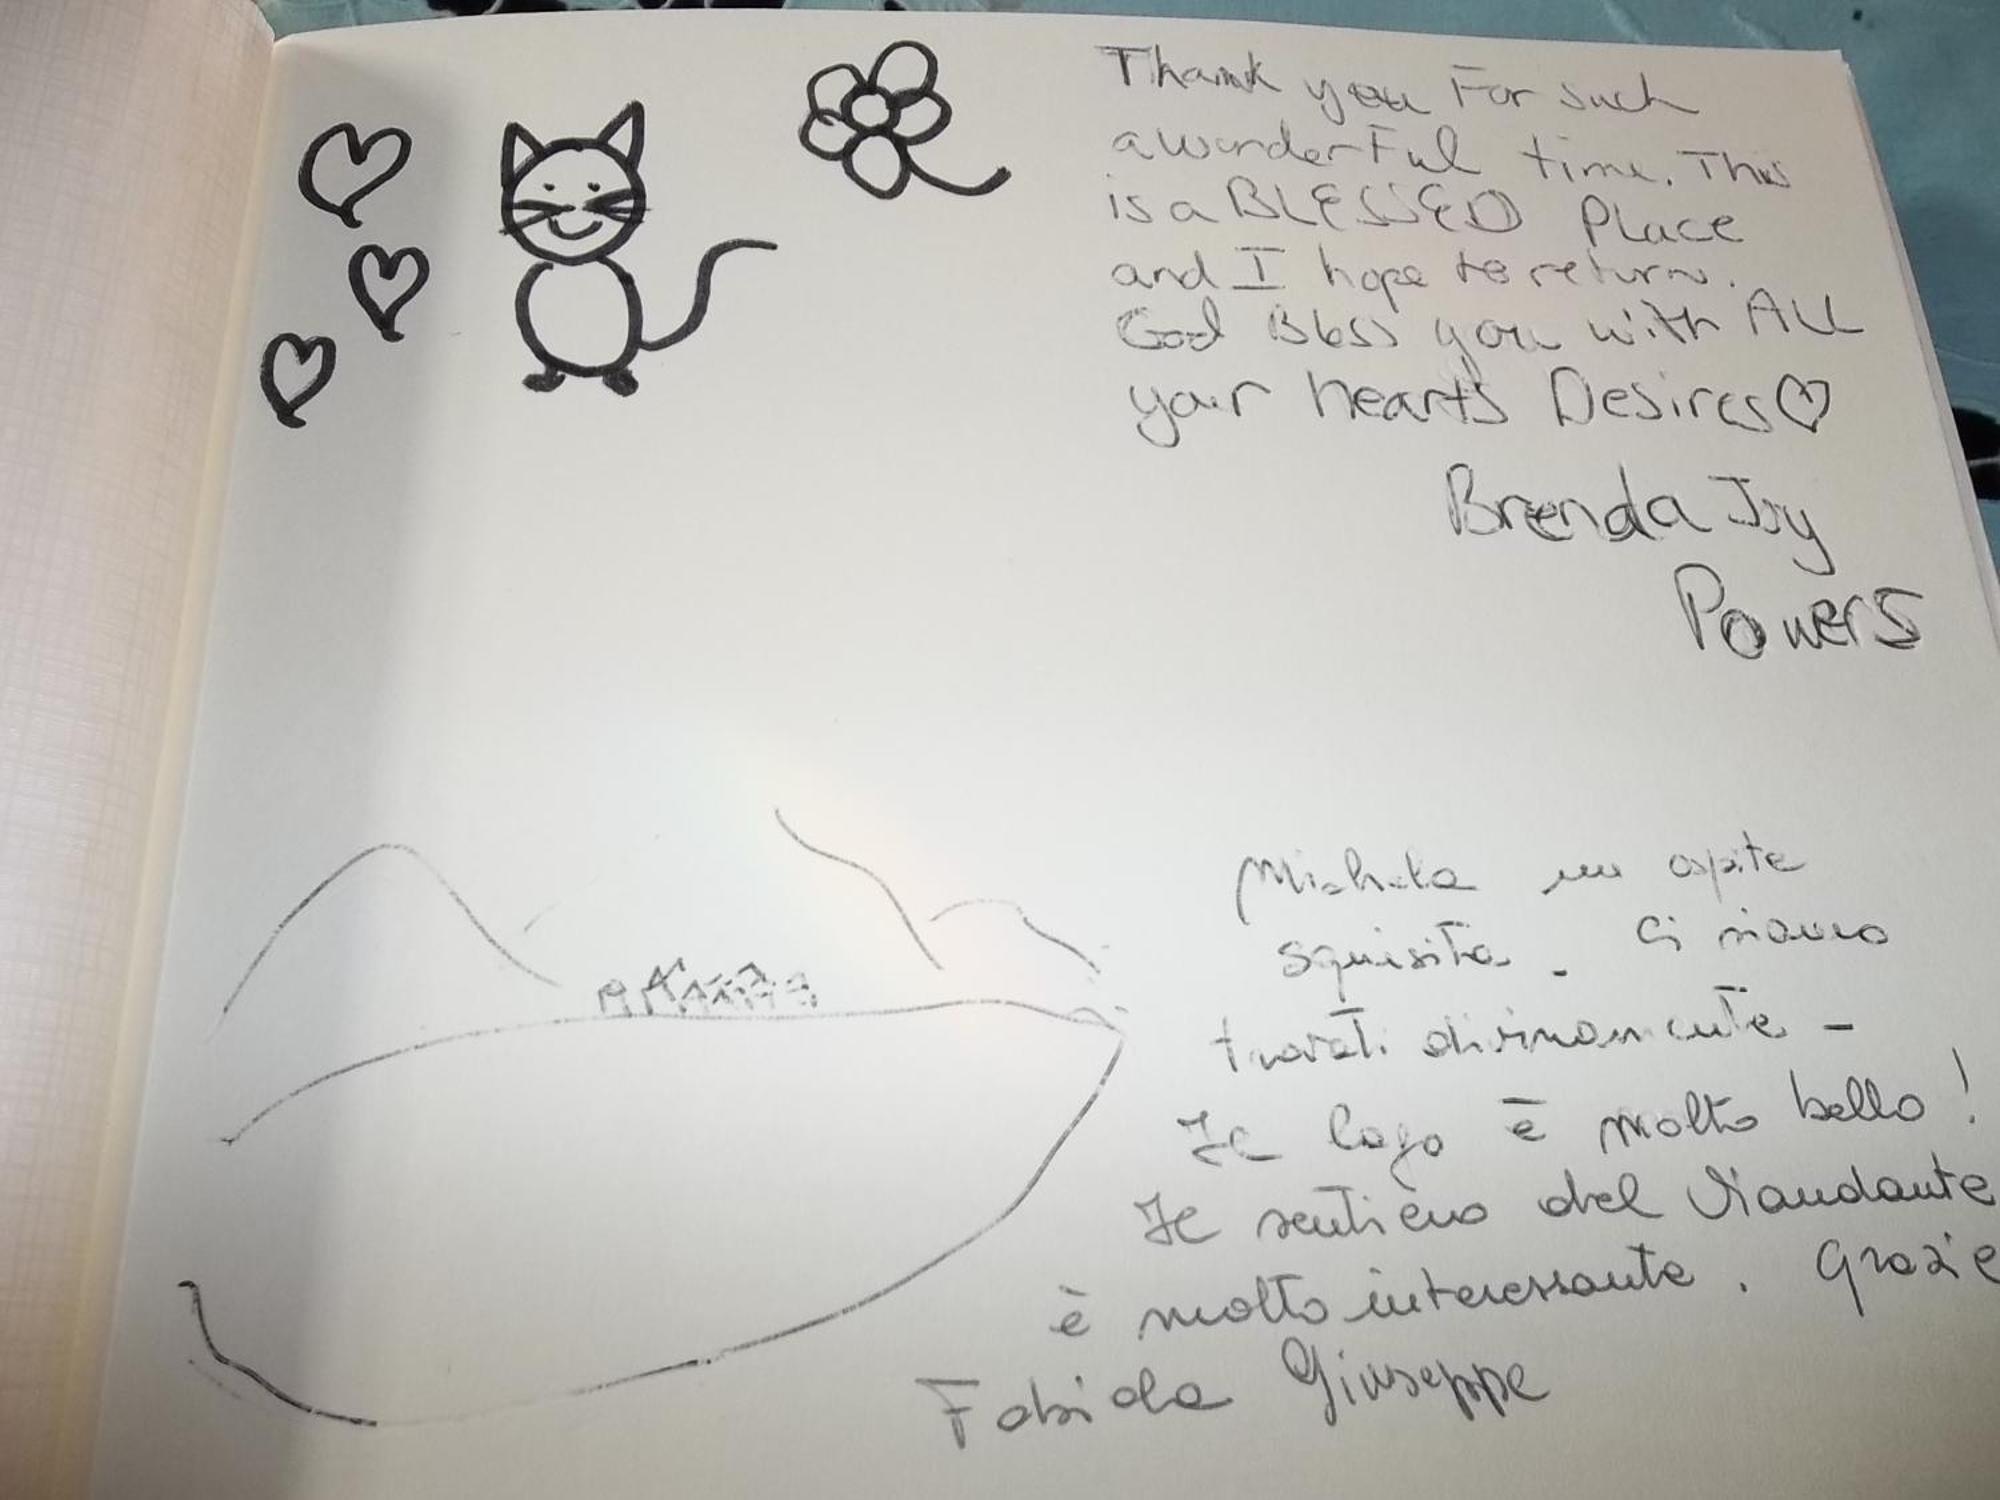 Thank you For such
a wonderFul time. This
is a BLESSED PLace
and I hope to return.
God Bless you with ALL
your hearts Desires♡
Brenda Joy
Powers
Michela un ospite
squisita. Ci siamo
trovati divinamente -
Il lago è molto bello!
Il sentiero del Viandante
è molto interessante. Grazie
Fabiola Giuseppe